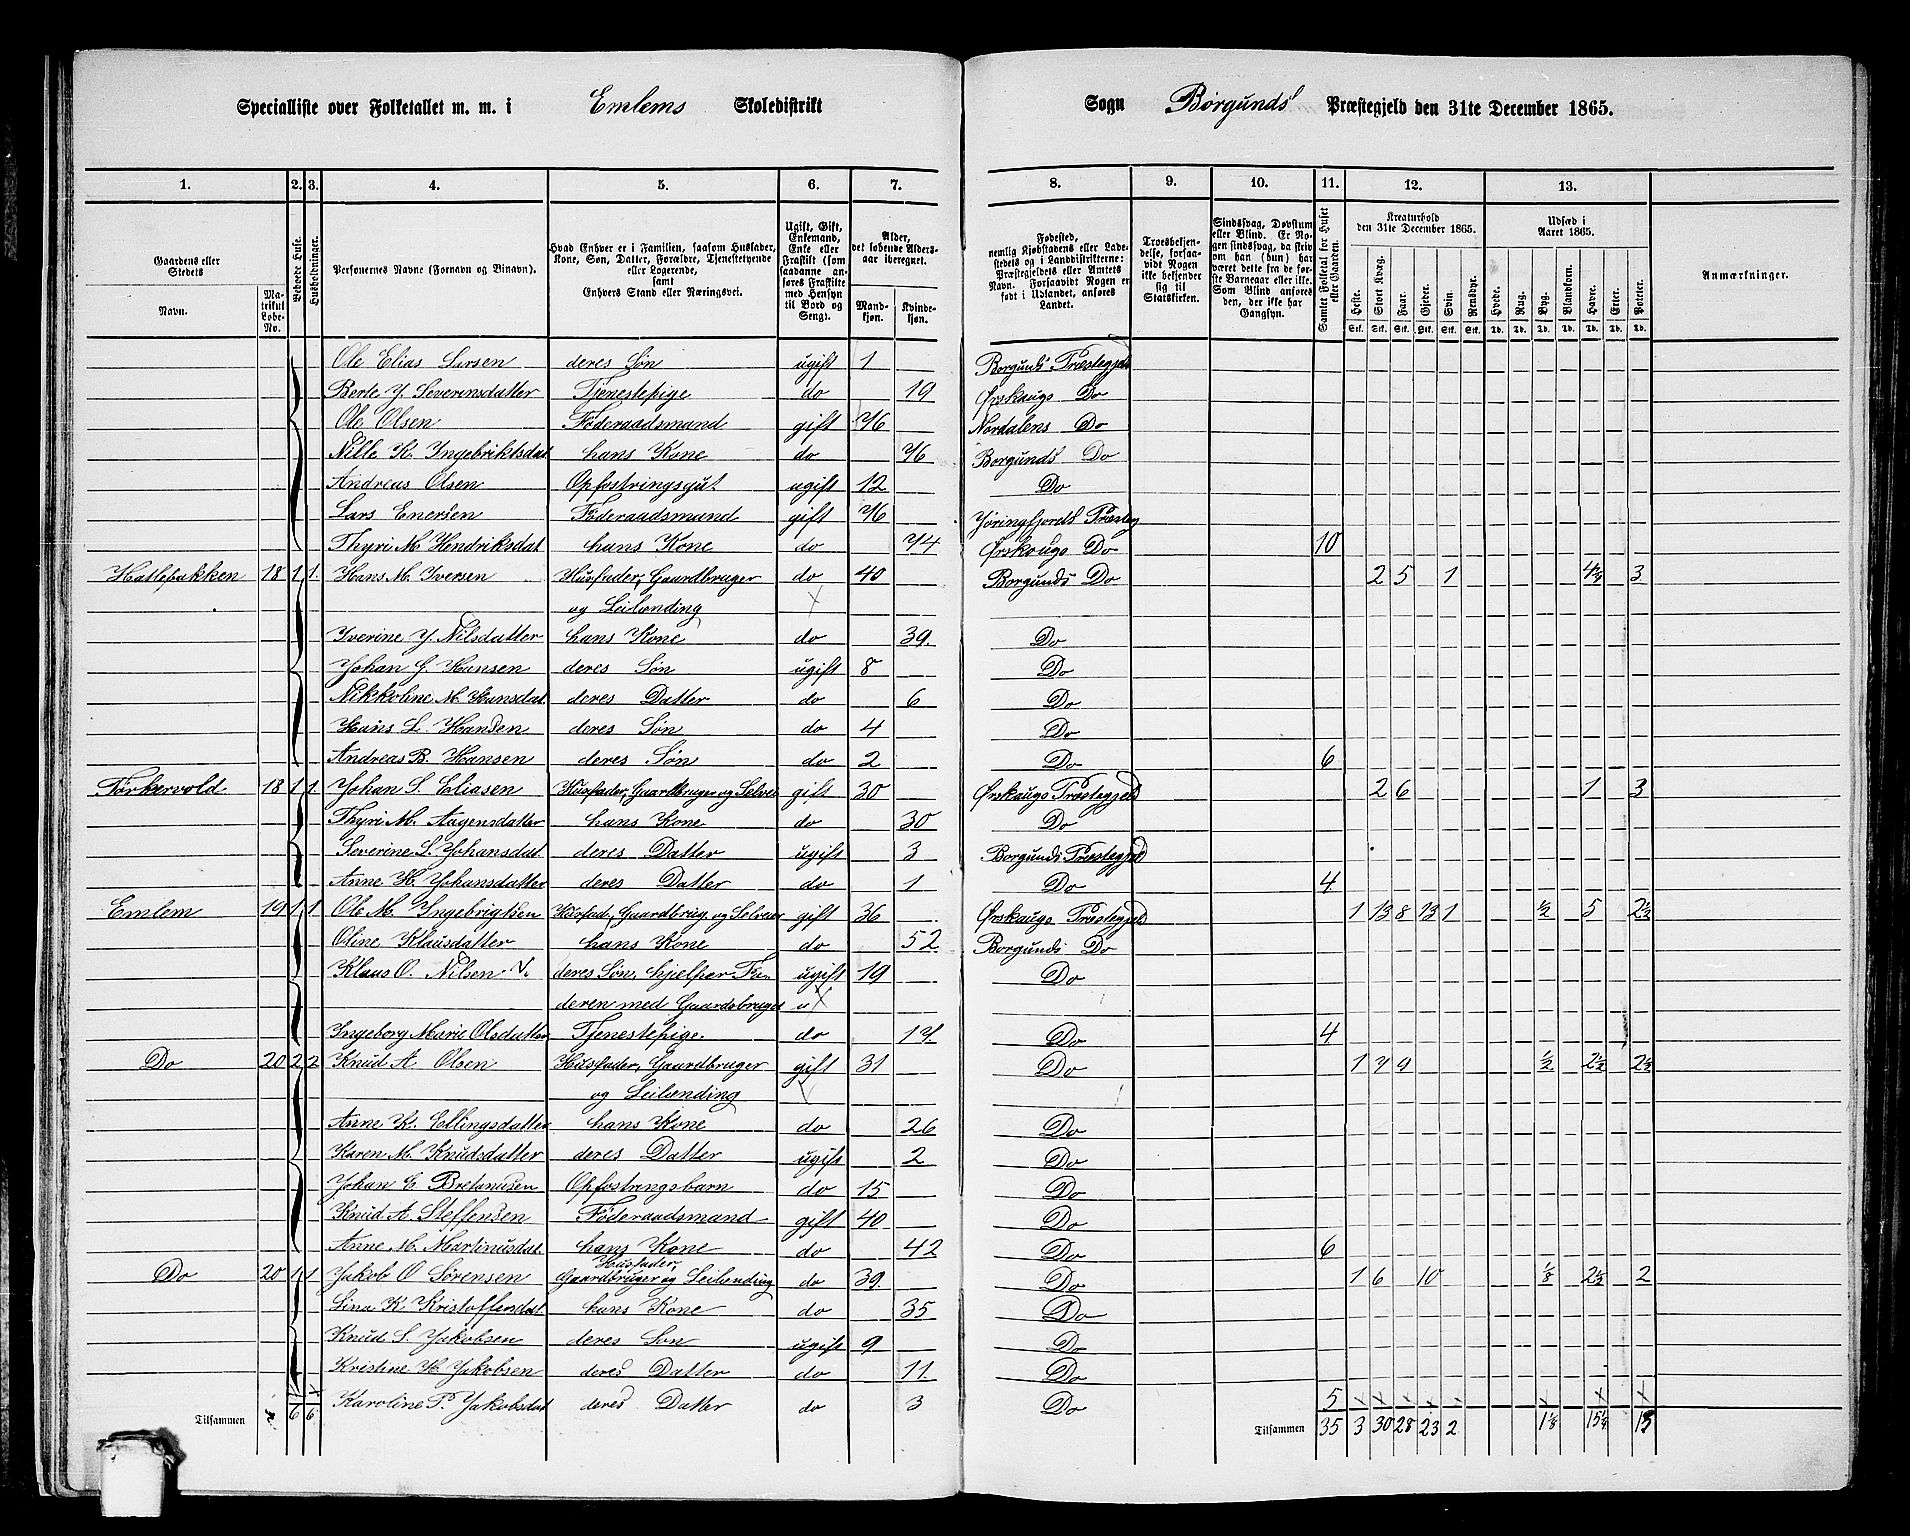 Specialliste over Folketallet m. m. i Emlems Skoledistrikt Sogn Borgunds Præstegjeld den 31te December 1865.
1. 2. 3. 4. 5. 6. 7. 8. 9. 10. 11. 12. 13.
Gaardens eller Stedets
Navn.
Matrikul Løbe-No.
Beboede Huse.
Husholdninger.
Personernes Navne (Fornavn og Binavn).
Hvad Enhver er i Familien, saasom Husfader, Kone, Søn, Datter, Forældre, Tjenestetyende eller Logerende, samt Enhvers Stand eller Næringsvei.
Ugift, Gift, Enkemand, Enke eller Fraskilt (som saadanne anføres Fraskilte med Hensyn til Bord og Seng).
Alder, det løbende Aldersaar iberegnet.
Mandkjøn. Kvindekjøn.
Fødested, nemlig Kjøbstadens eller Ladestedets og i Landdistrikterne: Præstegjeldets eller Amtets Navn. Forsaavidt Nogen er født i Udlandet, anføres Landet.
Troesbekjendelse, forsaavidt Nogen ikke bekjender sig til Statskirken.
Sindssvag, Døvstum eller Blind. Er Nogen sindssvag, da skriv om han (hun) har været dette fra de første Barneaar eller ikke. Som Blind anføres den, der ikke har Gangsyn.
Samlet Folketal for Huset eller Gaarden.
Kreaturhold den 31te December 1865.
Heste. Stort Kvæg. Faar. Gjeder. Svin. Rensdyr.
Stk. Stk. Stk. Stk. Stk. Stk.
Udsæd i Aaret 1865.
Hvede. Rug. Byg. Blandkorn. Havre. Erter. Poteter.
Td. Td. Td. Td. Td. Td. Td.
Anmærkninger.
Ole Elias Larsen deres Søn ugift 1 Borgunds Præstegjeld
Berte J. Severinsdatter Tjenestepige do 19 Ørskaugs Do
Ole Olsen Føderaadsmand gift 76 Nordalens Do
Nille K. Ingebriktsdat hans Kone do 76 Borgunds Do
Andreas Olsen Opfostringsgut ugift 12 Do
Lars Enersen Føderaadsmand gift 76 Jøringfjords Præsteg
Thyri M. Hendriksdat hans Kone do 74 Ørskougs Do 10
Hatlebakken 18 1 1. Hans M. Iversen Husfader, Gaardbruger do 40 Borgunds Do 2 5 1 4¼ 3
og Leilænding
Iverine J. Nilsdatter hans Kone do 39. Do
Johan G. Hansen deres Søn ugift 8 Do
Nikkoline M. Hansdat. deres Datter do 6 Do
Hans L. Hansen deres Søn do 4 Do
Andreas B. Hansen deres Søn do 2 Do 6
Torkervold 18 1 1. Johan S. Eliasen Husfader, Gaardbruger og Selvei gift 30 Ørskaugs Præstegjeld 2 6 1 3
Thyri M. Aagensdatter hans Kone do 30 Do
Severine S. Johansdat. deres Datter ugift 3 Borgunds Præstegjeld
Anne H. Johansdatter deres Datter do 1 Do 4
Emlem 19 1 1 Ole M. Ingebrigtsen Husfad., Gaardbrug. og Selveier gift 36 Ørskaugs Præstegjeld 1 13 8 13 1 ½ 5 2½
Oline Klausdatter hans Kone do 52. Borgunds Do
Klaus O. Nilsen deres Søn, hjelper Fa- ugift 19 Do
deren med Gaardsbruget
Ingeborg Marie Olsdatter Tjenestepige. do 17. Do 4
Do 20 2 2 Knud A. Olsen Husfader, Gaardbruger gift 31 Do 1 7 9 ½ 2½ 2½
og Leilænding
Anne K. Ellingsdatter hans Kone do 26 Do
Karen M. Knudsdatter deres Datter ugift 2 Do
Johan E. Bretanusen Opfostringsbarn do 15 Do
Knud A. Steffensen Føderaadsmand gift 40 Do
Anne M. Martinusdat. hans Kone do 42 Do 6
Do 20 1 1 Jakob O Sørensen Husfader, Gaardbruger og Leilænding do 39 Do 1 6 10 ⅛ 2½ 2
Lina K. Kristoffersdat hans Kone do 35 Do
Knud S. Jakobsen deres Søn ugift 9 Do
Kristine H. Jakobsen deres Datter do 11. Do
Karoline P. Jakobsdat deres Datter do 3 Do 5
Tilsammen 6 6. Tilsammen 35 3 30 28 23 2 1⅛ 15¼ 13